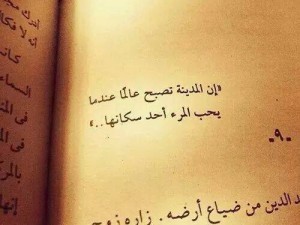 «إن المدينة تصبح عالمًا عندما
يحب المرء أحد سكانها..»
-٩-
الدين من ضياع أرضه. زاره زوج